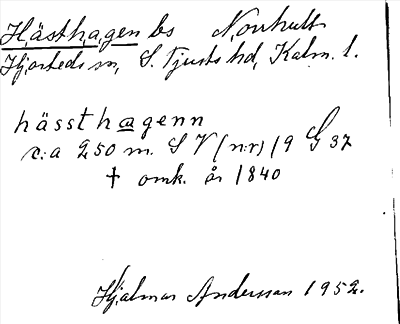 Hästhagen bs Norrhult
Hjorteds sn, S. Tjusts hd, Kalm. l.
hässthagenn
c:a 250 m. SV (n:r) 19 G 37
† omk. år 1840
Hjalmar Andersson 1952.